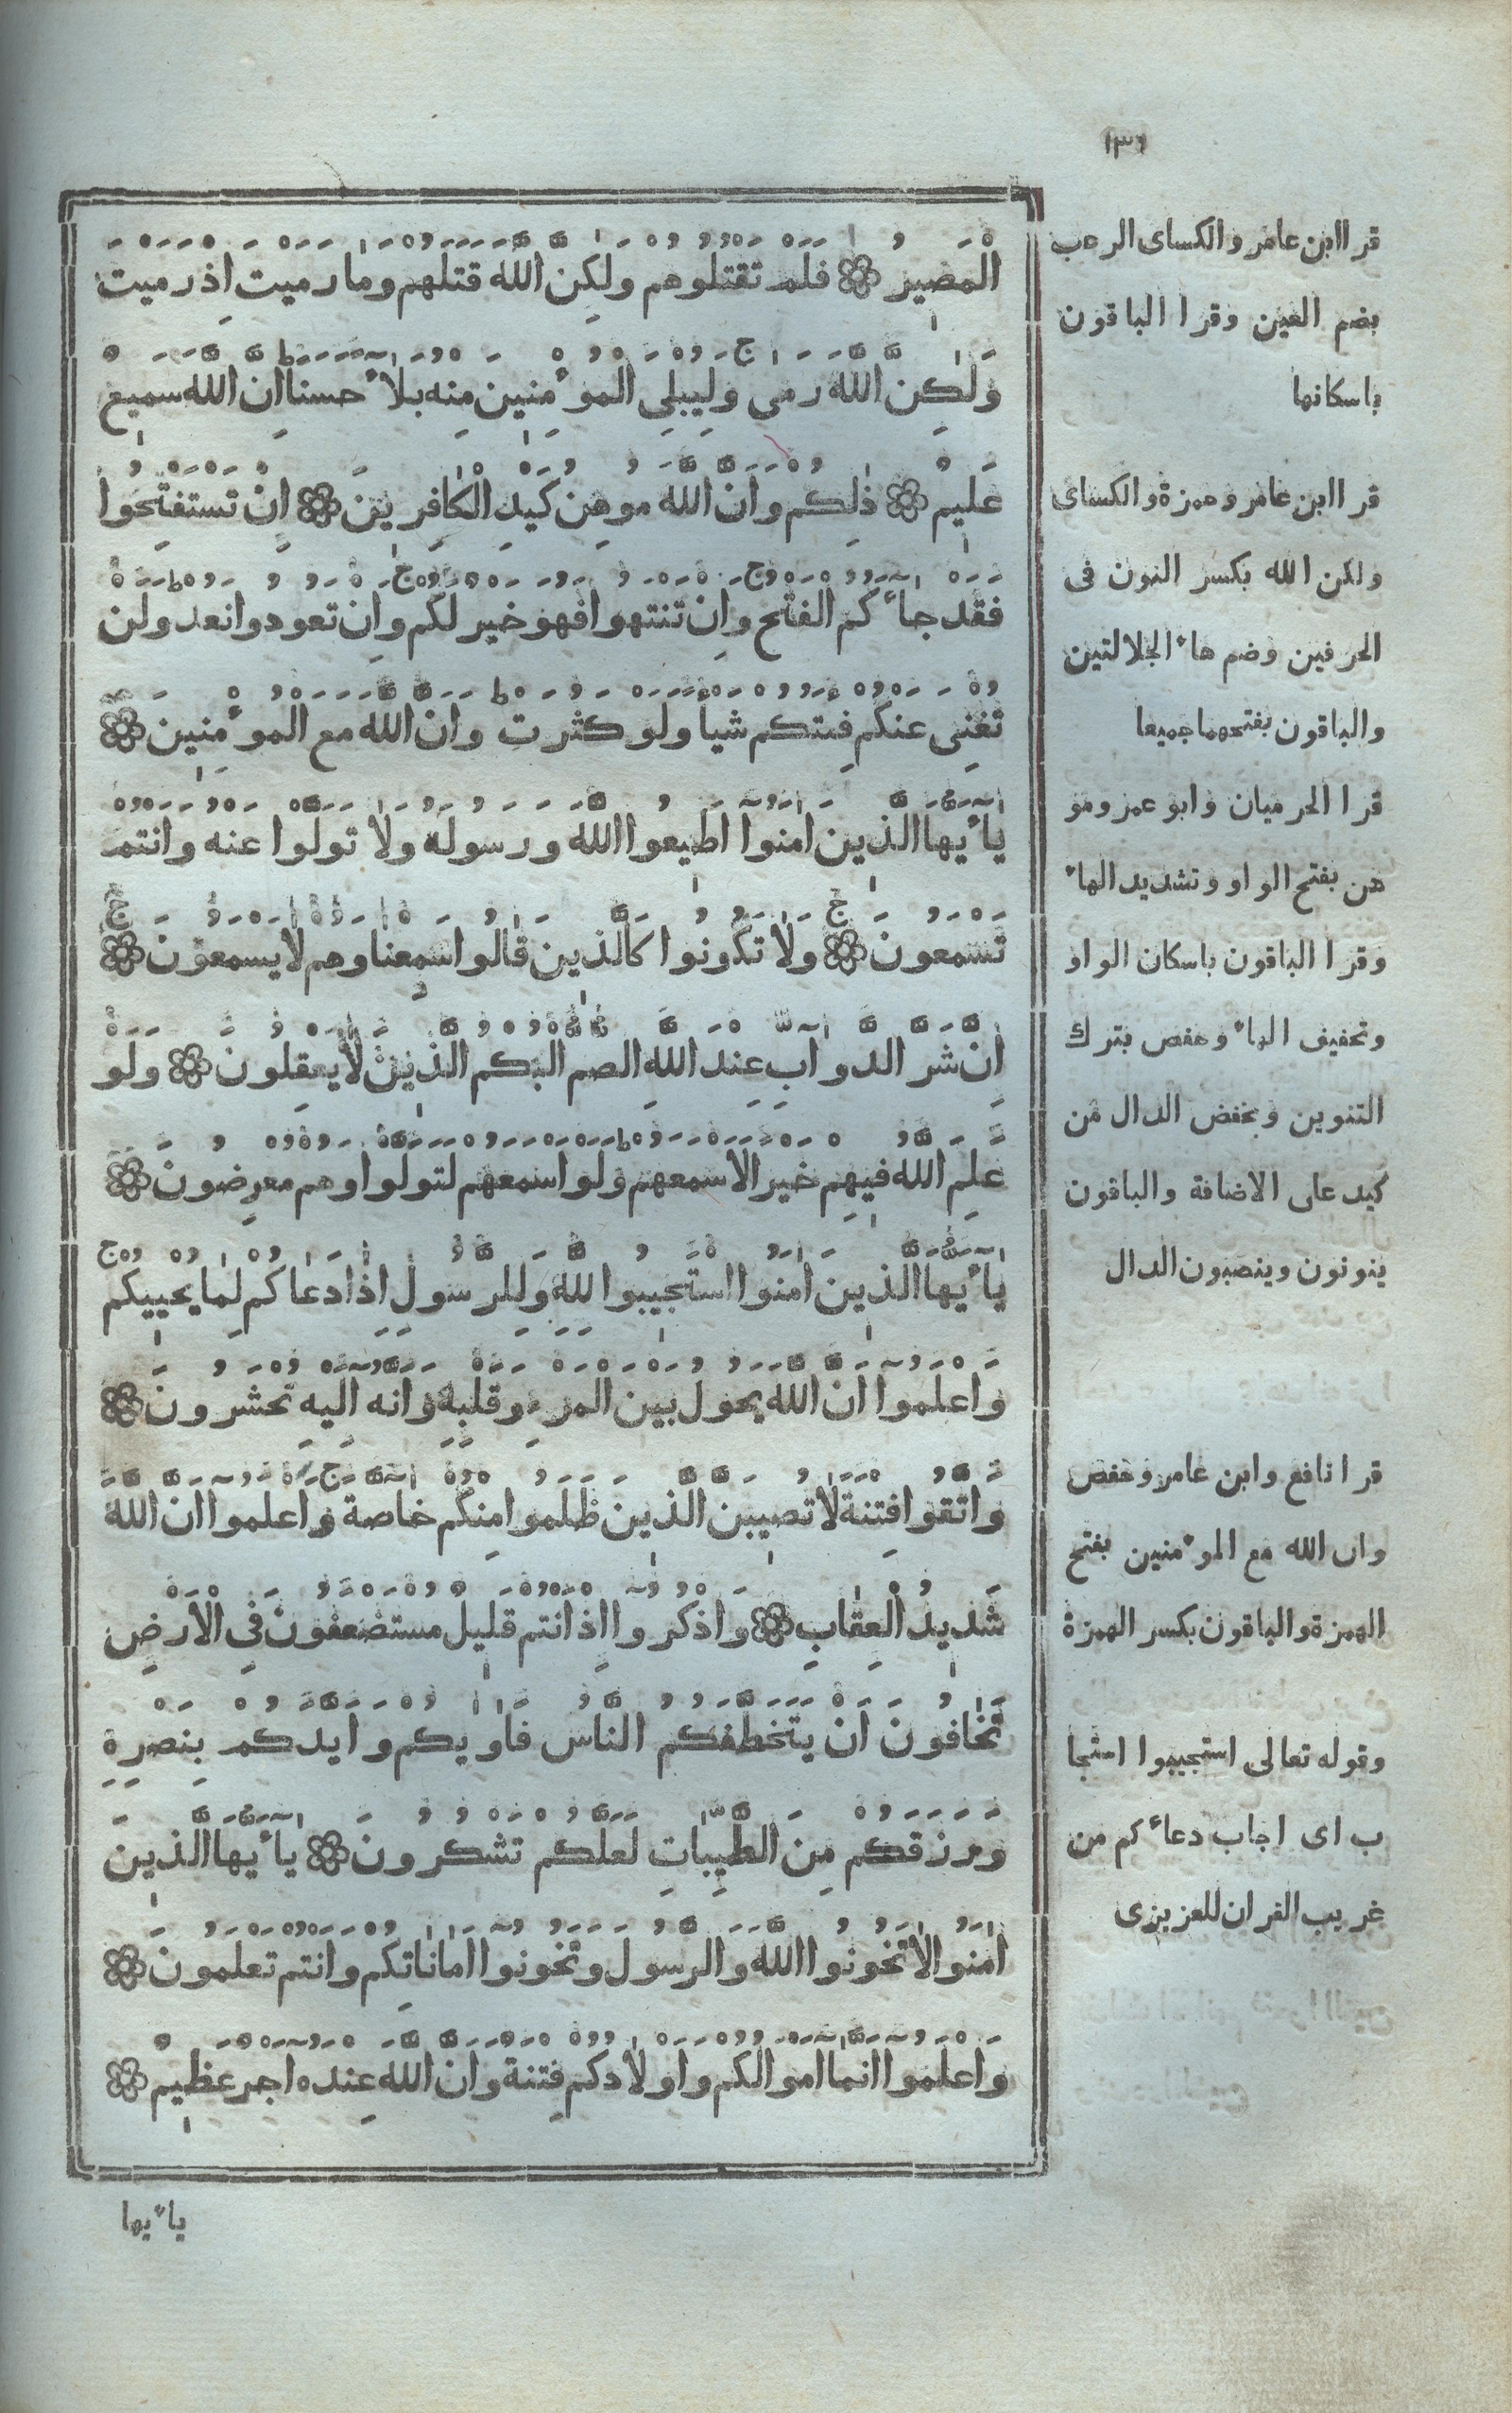 ١٣٦
الْمَصِيرُ ۞ فَلَمْ تَقْتُلُوهُمْ وَلٰكِنَّ اللّٰهَ قَتَلَهُمْ وَمَا رَمَيْتَ اِذْ رَمَيْتَ
وَلٰكِنَّ اللّٰهَ رَمٰى ج وَلِيُبْلِىَ الْمُؤْمِنِينَ مِنْهُ بَلَآءً حَسَنًا ط اِنَّ اللّٰهَ سَمِيعٌ
عَلِيمٌ ۞ ذٰلِكُمْ وَاَنَّ اللّٰهَ مُوهِنُ كَيْدِ الْكَافِرِينَ ۞ اِنْ تَسْتَفْتِحُوا
فَقَدْ جَآءَكُمُ الْفَتْحُ ج وَاِنْ تَنْتَهُوا فَهُوَ خَيْرٌ لَكُمْ ج وَاِنْ تَعُودُوا نَعُدْ ط وَلَنْ
تُغْنِىَ عَنْكُمْ فِئَتُكُمْ شَيْاً وَلَوْ كَثُرَتْ ط وَاَنَّ اللّٰهَ مَعَ الْمُؤْمِنِينَ ۞
يَآءَيُّهَا الَّذِينَ اٰمَنُوآ اَطِيعُوا اللّٰهَ وَرَسُولَهُ وَلَا تَوَلَّوْا عَنْهُ وَاَنْتُمْ
تَسْمَعُونَ ۞ ج وَلَا تَكُونُوا كَالَّذِينَ قَالُوا سَمِعْنَا وَهُمْ لَا يَسْمَعُونَ ۞ ج
اِنَّ شَرَّ الدَّوَآبِّ عِنْدَ اللّٰهِ الصُّمُّ الْبُكْمُ الَّذِينَ لَا يَعْقِلُونَ ۞ وَلَوْ
عَلِمَ اللّٰهُ فِيهِمْ خَيْرًا لَاَسْمَعَهُمْ ط وَلَوْ اَسْمَعَهُمْ لَتَوَلَّوْا وَهُمْ مُعْرِضُونَ ۞
يَآءَيُّهَا الَّذِينَ اٰمَنُوا اسْتَجِيبُوا لِلّٰهِ وَلِلرَّسُولِ اِذَا دَعَاكُمْ لِمَا يُحْيِيكُمْ ج
وَاعْلَمُوآ اَنَّ اللّٰهَ يَحُولُ بَيْنَ الْمَرْءِ وَقَلْبِهِ وَاَنَّهُ اِلَيْهِ تُحْشَرُونَ ۞
وَاتَّقُوا فِتْنَةً لَا تُصِيبَنَّ الَّذِينَ ظَلَمُوا مِنْكُمْ خَآصَّةً ج وَاعْلَمُوآ اَنَّ اللّٰهَ
شَدِيدُ الْعِقَابِ ۞ وَاذْكُرُوآ اِذْ اَنْتُمْ قَلِيلٌ مُسْتَضْعَفُونَ فِى الْاَرْضِ
تَخَافُونَ اَنْ يَتَخَطَّفَكُمُ النَّاسُ فَاٰوٰيكُمْ وَاَيَّدَكُمْ بِنَصْرِهِ
وَرَزَقَكُمْ مِنَ الطَّيِّبَاتِ لَعَلَّكُمْ تَشْكُرُونَ ۞ يَآءَيُّهَا الَّذِينَ
اٰمَنُوا لَا تَخُونُوا اللّٰهَ وَالرَّسُولَ وَتَخُونُوآ اَمَانَاتِكُمْ وَاَنْتُمْ تَعْلَمُونَ ۞
وَاعْلَمُوآ اَنَّمَآ اَمْوَالُكُمْ وَاَوْلَادُكُمْ فِتْنَةٌ وَاَنَّ اللّٰهَ عِنْدَهُ اَجْرٌ عَظِيمٌ ۞
ياءيها
قرا ابن عامر والكساى الرعب
بضم العين وقرا الباقون
باسكانها
قرا ابن عامر وحمزة والكساى
ولكن الله بكسر النون فى
الحرفين وضم هاء الجلالتين
والباقون بفتحهما جميعا
قرا الحرميان وابو عمرو مو
هن بفتح الواو وتشديد الهاء
وقرا الباقون باسكان الواو
وتخفيف الهاء وحفص بترك
التنوين وبخفض الدال من
كيد على الاضافة والباقون
ينونون وينصبون الدال
قرا نافع وابن عامر وحفص
وان الله مع الموءمنين بفتح
الهمزة والباقون بكسر الهمزة
وقوله تعالى استجيبوا استجا
ب اى اجاب دعاءكم من
غريب القران للعزيزى